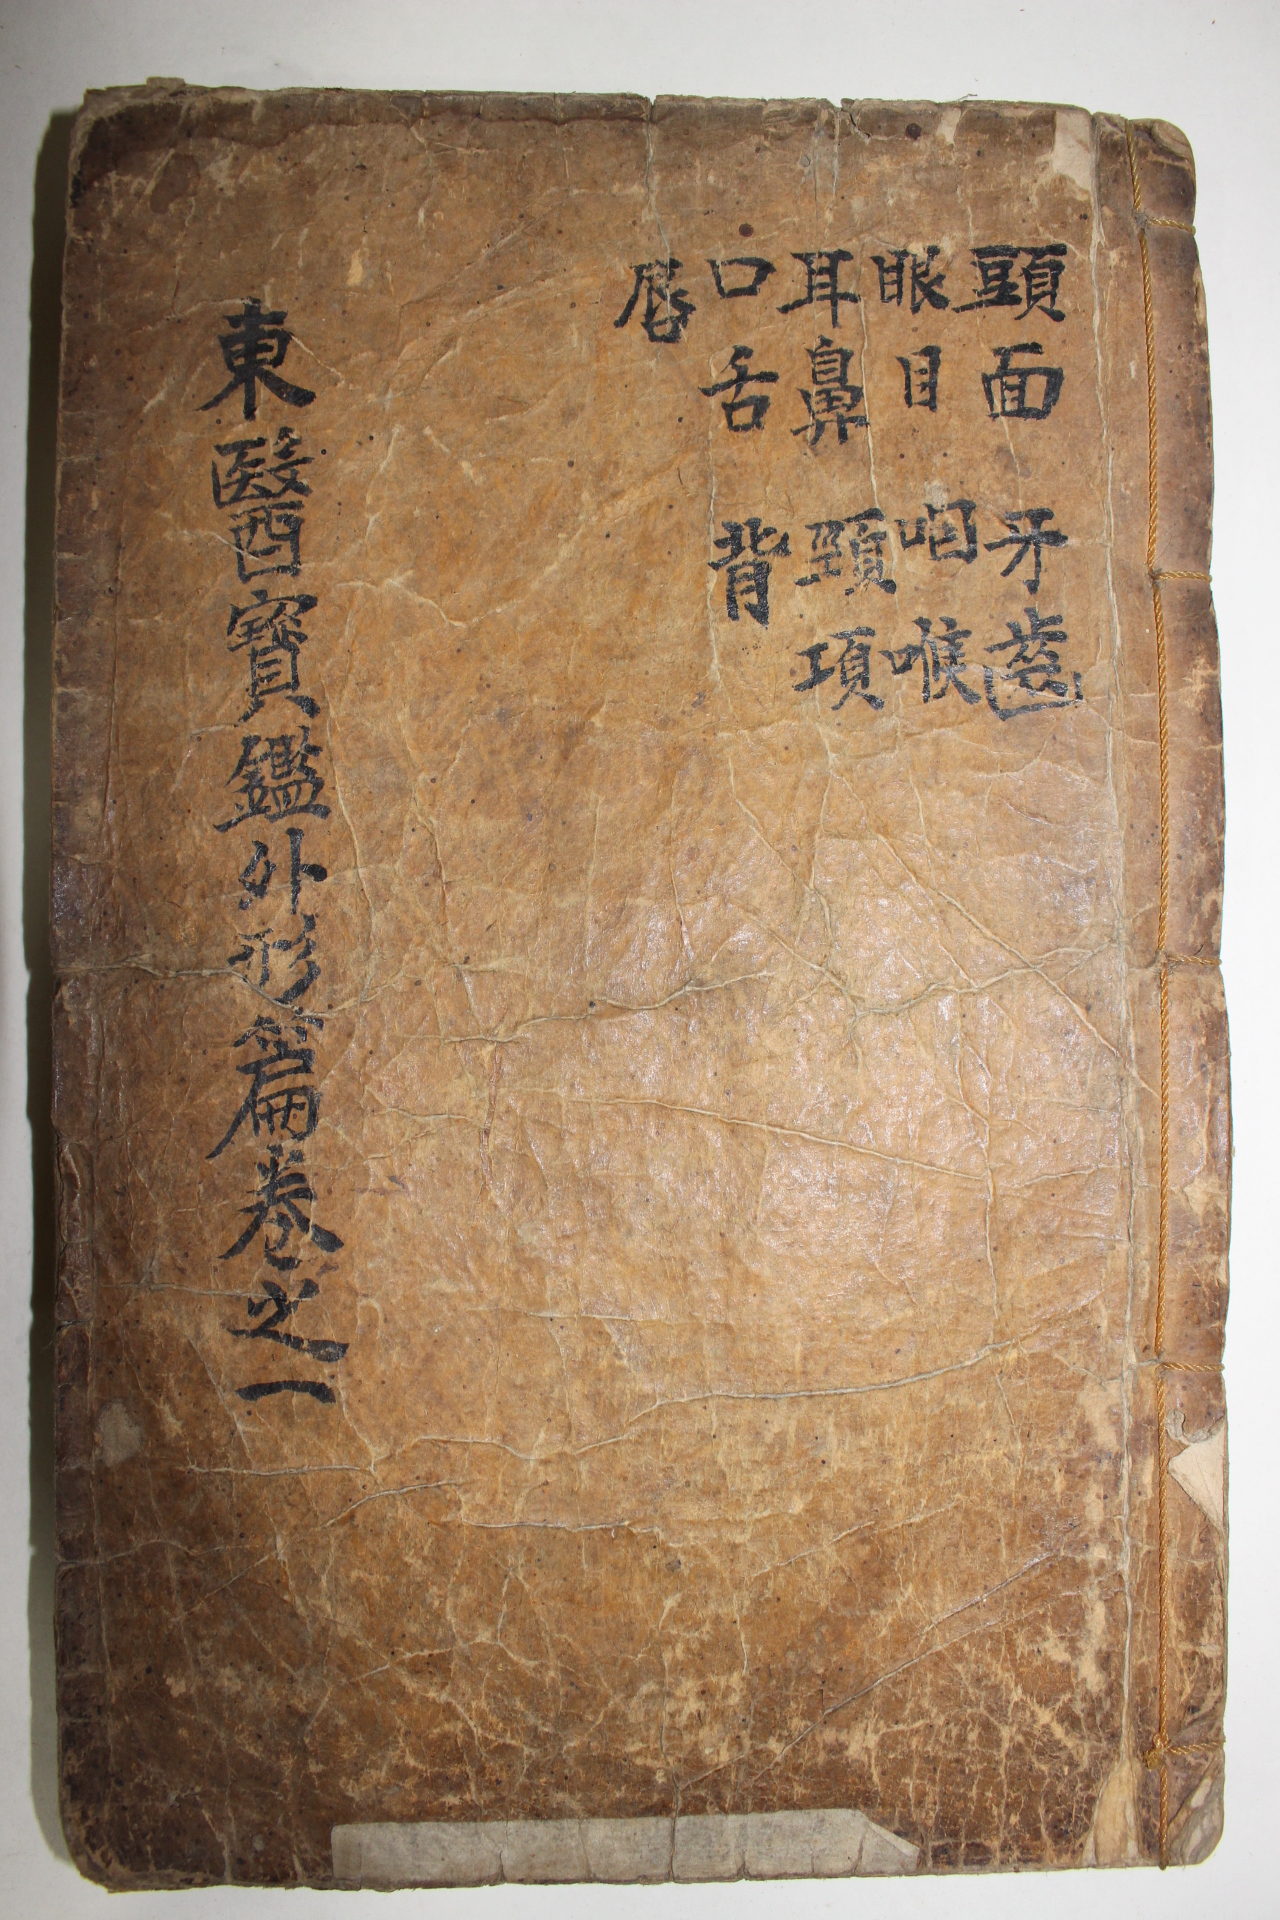 頭面
眼目
耳鼻
口舌
脣
牙齒
咽喉
頸項
背
東醫寶鑑外形篇卷之一